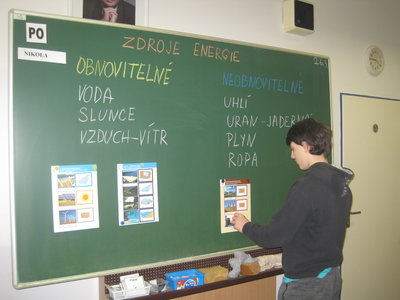 PO
NIKOLA
ZDROJE ENERGIE
26.3.
OBNOVITELNÉ
VODA
SLUNCE
VZDUCH-VÍTR
NEOBNOVITELNÉ
UHLÍ
URAN-JADERNÁ
PLYN
ROPA